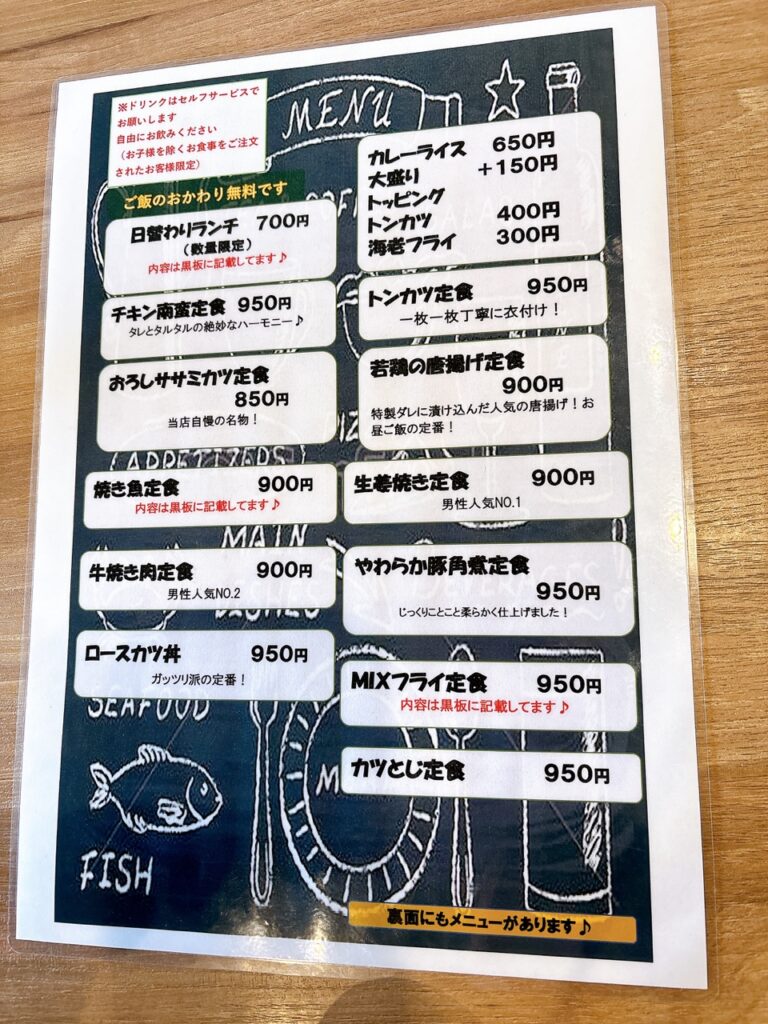 ※ドリンクはセルフサービスで
お願いします
自由にお飲みください
（お子様を除くお食事をご注文
されたお客様限定）
MENU
ご飯のおかわり無料です
日替わりランチ 700円
（数量限定）
内容は黒板に記載してます♪
チキン南蛮定食 950円
タレとタルタルの絶妙なハーモニー♪
おろしササミカツ定食
850円
当店自慢の名物！
APPETIZERS
焼き魚定食 900円
内容は黒板に記載してます♪
MAIN
牛焼き肉定食 900円
男性人気NO.2
ロースカツ丼 950円
ガッツリ派の定番！
SEAFOOD
FISH
カレーライス 650円
大盛り +150円
トッピング
トンカツ 400円
海老フライ 300円
トンカツ定食 950円
一枚一枚丁寧に衣付け！
若鶏の唐揚げ定食
900円
特製ダレに漬け込んだ人気の唐揚げ！お
昼ご飯の定番！
生姜焼き定食 900円
男性人気NO.1
やわらか豚角煮定食
950円
じっくりことこと柔らかく仕上げました！
MIXフライ定食 950円
内容は黒板に記載してます♪
カツとじ定食 950円
裏面にもメニューがあります♪